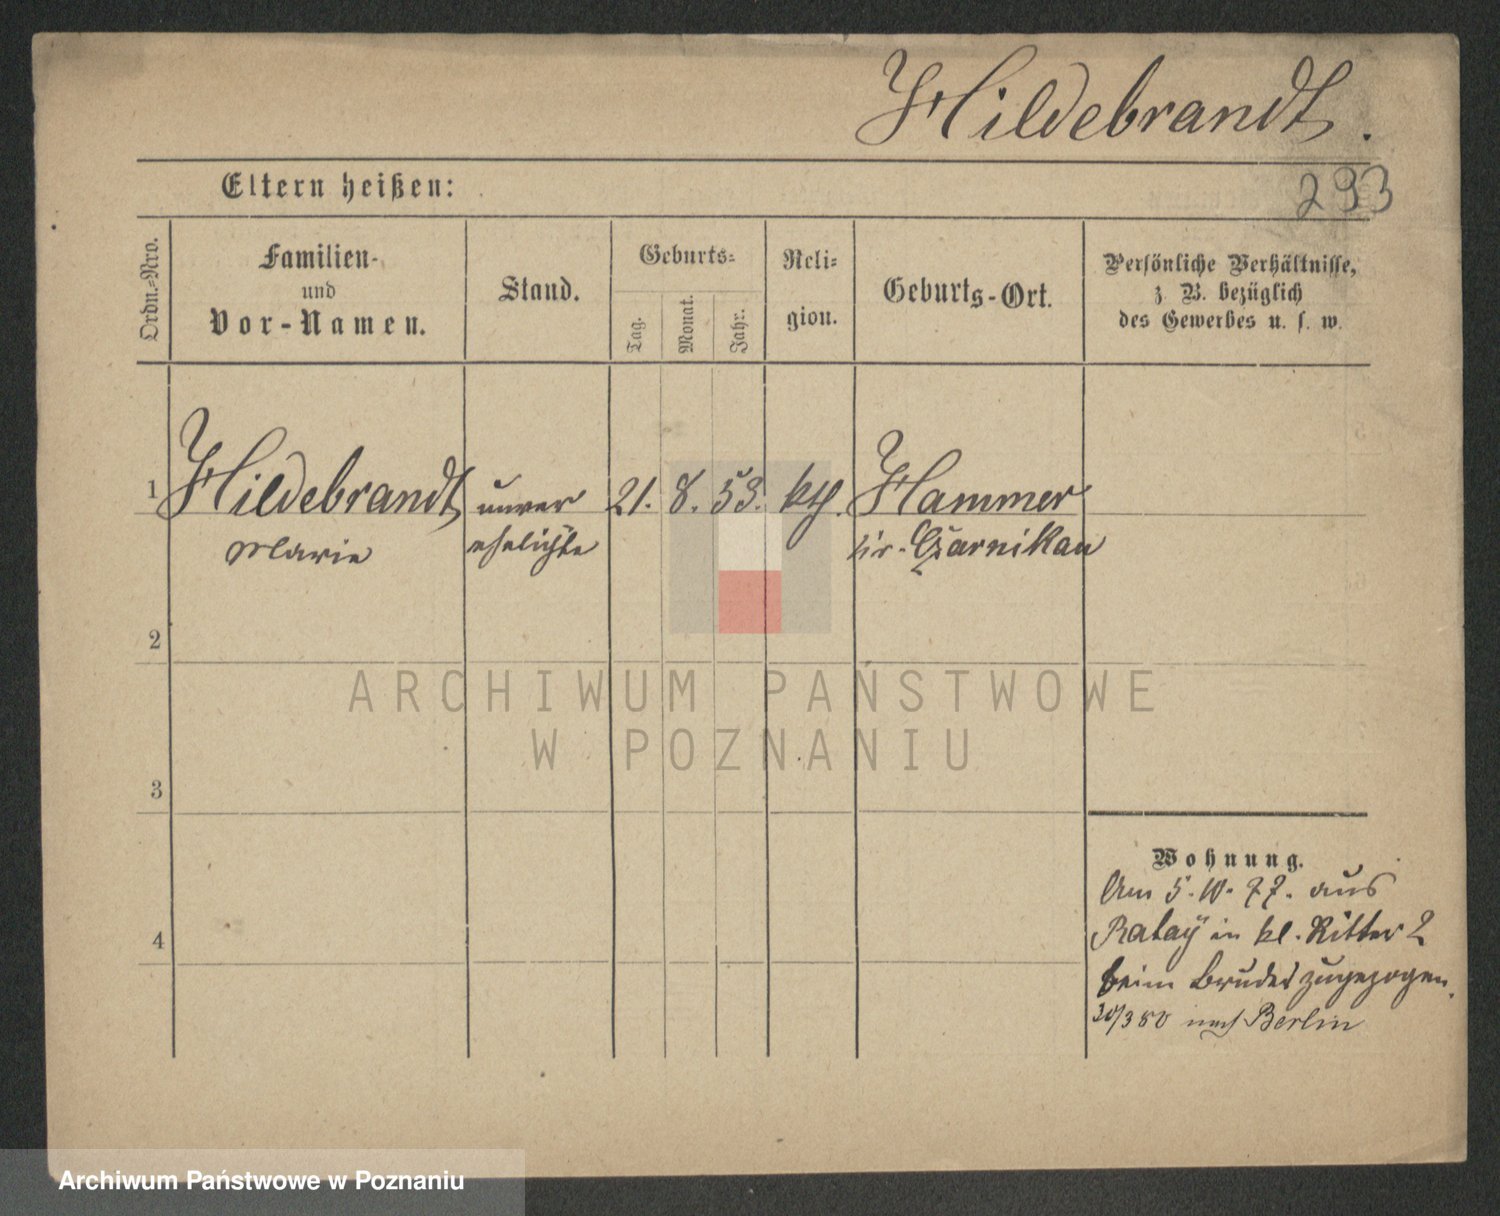 Hildebrandt.
Eltern heißen:
293
Ordn.-Nro.
Familien-
und
Vor-Namen.
Stand.
Geburts-
Tag.
Monat.
Jahr.
Reli-
gion.
Geburts-Ort.
Persönliche Verhältnisse,
z. B. bezüglich
des Gewerbes u. s. w.
1 Hildebrandt unver 21. 8. 53. kth. Hammer
Marie ehelichte Kr. Czarnikau
2
3
4
Wohnung.
Am 5. 10. 77. aus
Ratay in kl. Ritter 2
beim Bruder zugezogen.
30/3 80 nach Berlin
ARCHIWUM PAŃSTWOWE
W POZNANIU
Archiwum Państwowe w Poznaniu